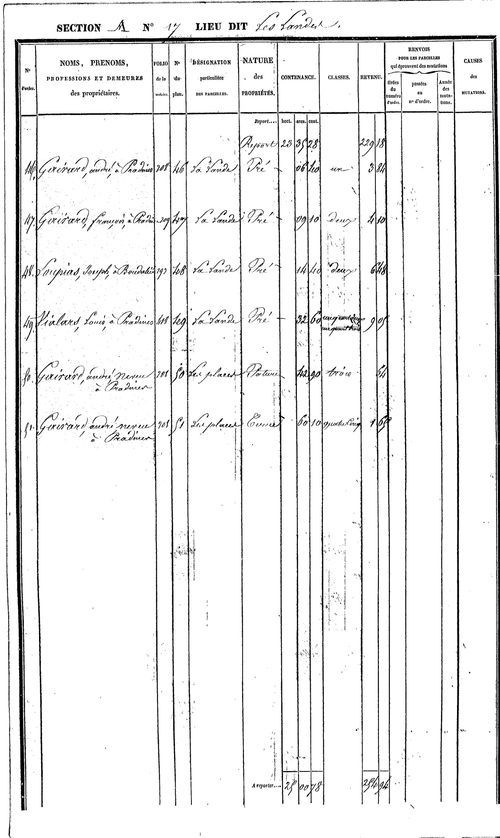 SECTION A N° 17 LIEU DIT Les Landes.
N° d'ordre.
NOMS, PRENOMS, PROFESSIONS ET DEMEURES des propriétaires.
FOLIO de la matrice.
N° du plan.
DÉSIGNATION particulière DES PARCELLES.
NATURE des PROPRIÉTÉS.
CONTENANCE.
CLASSES.
REVENU.
RENVOIS POUR LES PARCELLES qui éprouvent des mutations
du numéro d'ordre.
portées au n° d'ordre.
Année des mutations.
CAUSES des MUTATIONS.
Report.... hect. ares. cent.
Report 23 35 28 229 18
46. Gairard, andré, à Pradines 208 46 La Lande Pré - 06 40 un 3 84
47. Gairard, françois, à Pradines 209 47 La Lande Pré - 09 10 deux 4 10
48. Soupias, Joseph, à 48 La Lande Pré - 14 40 deux 6 48
49. Vialars, Louis, à Pradines 408 49 La Lande Pré - 32 60 9 05
50. Gairard, andré neveu 208 50 Les places Pature - 42 90 trois 64
à Pradines
51. Gairard, andré neveu 208 51 Les places - 60 10 1 65
à Pradines
A reporter.... 25 00 78 254 94